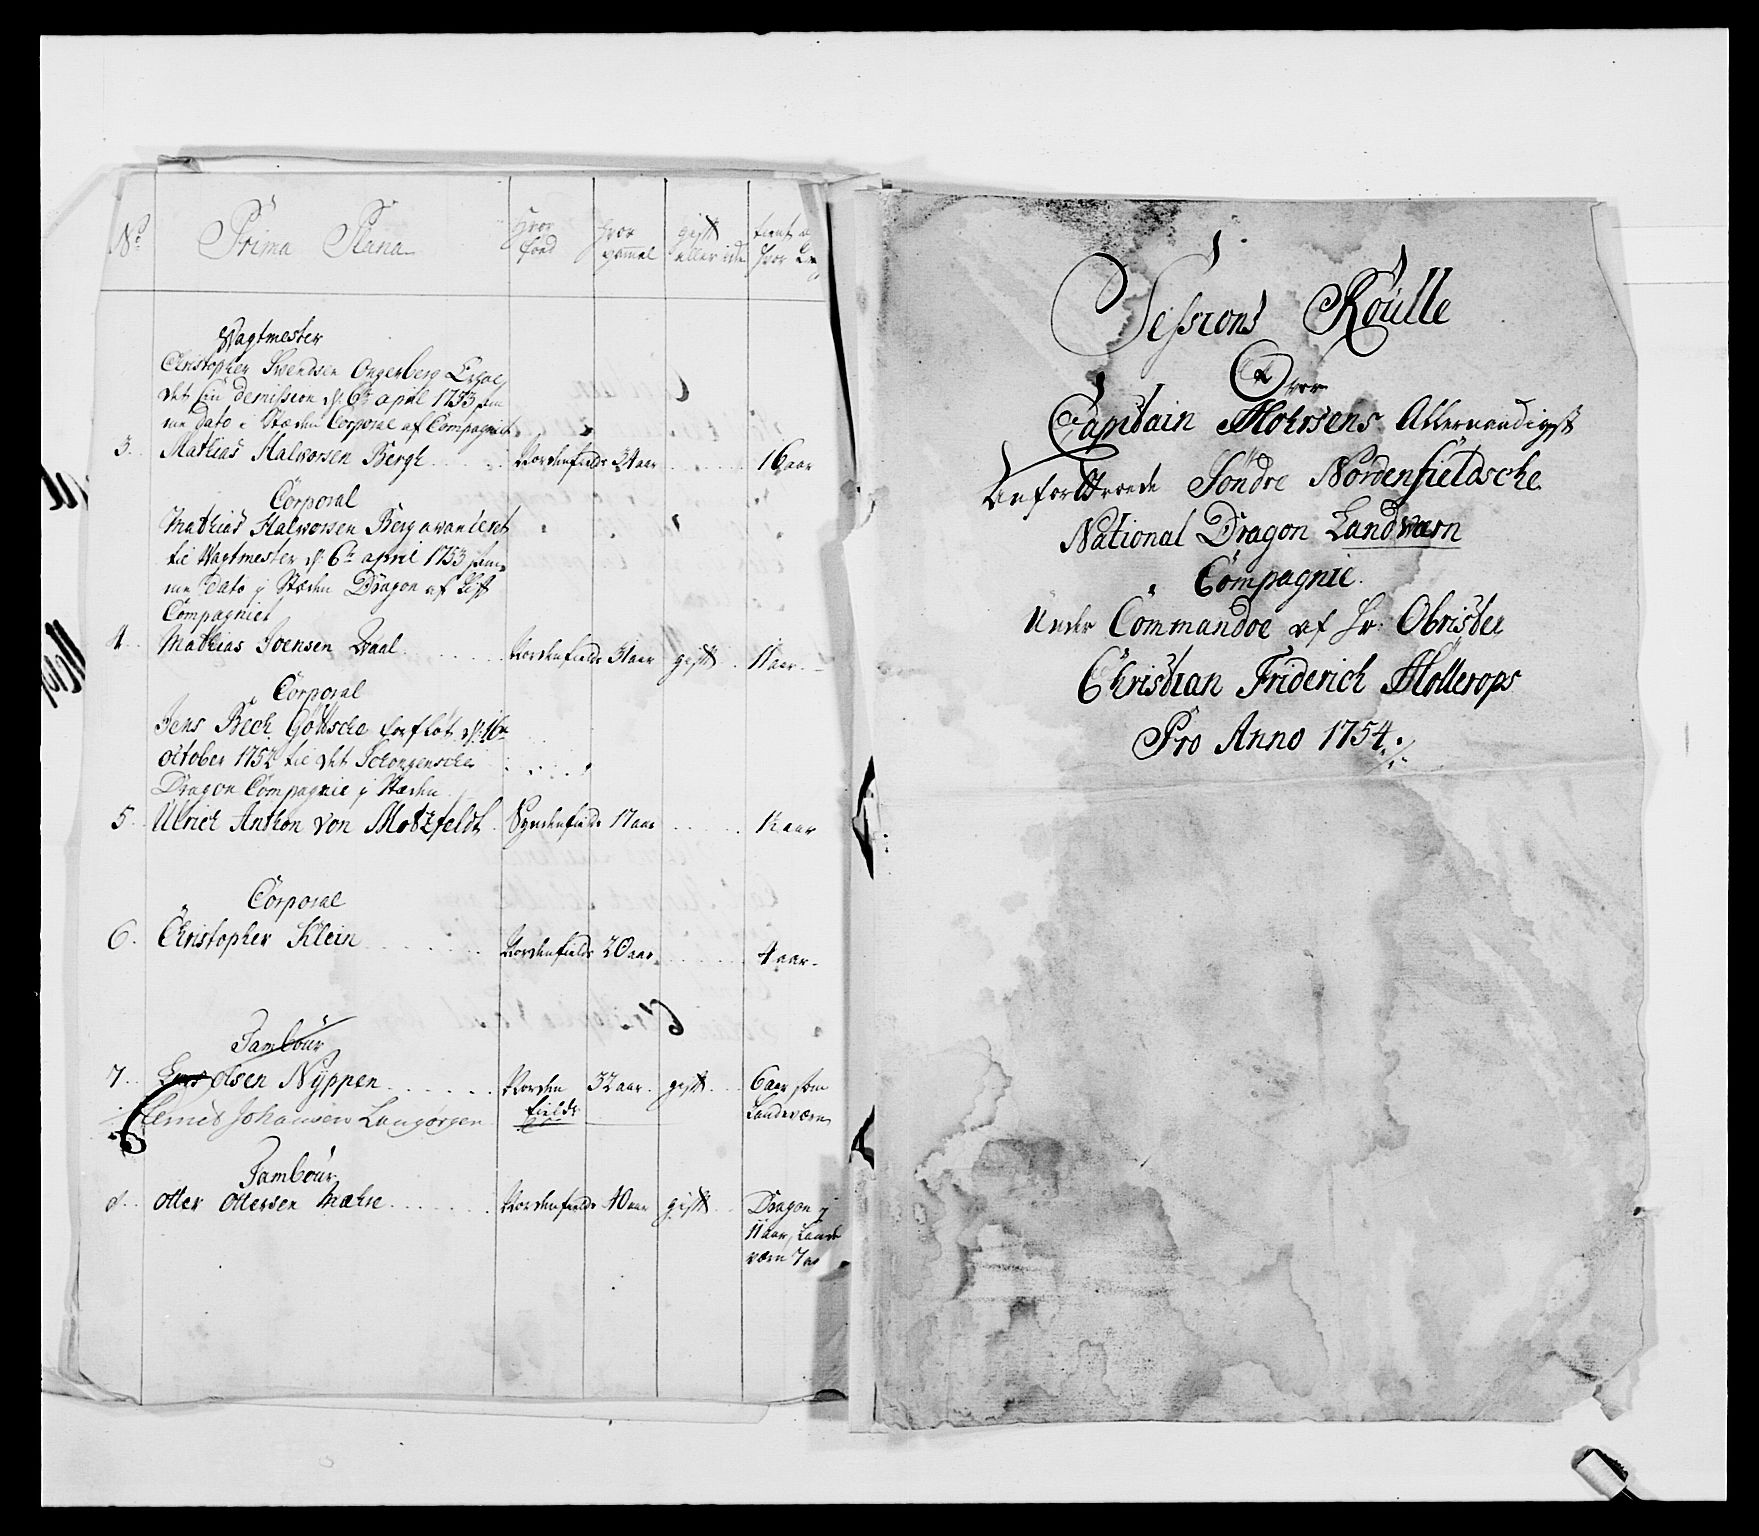 No
Prima Plana
Hvor
fød
hvor
gammel
gift
eller ide
tient
hvor
Wagtmester
Christopher Svendsen Ongerberg Erhol
det sin Demission d: 6te april 1753 sam
me Dato i Stæden Corporal af Compagniet
3. Mathias Halvorsen Bergh Nordenfields 34 aar 16 aar
Corporal
Mathias Halvorsen Berg avanceret
til Wagtmester d: 6te april 1753 sam
me Dato j Stæden Dragon af
Compagniet
4. Mathias Svensen Waal Nordenfields 31 aar gift 11 aar
Corporal
Jens Bech Göttsche forflöt d: 16de
october 1752 til det Schongenske
Dragon Compagnie j Stæden
5 Ulrich Anthon von Motzfeldt Syndenfields 17 aar 1½ aar
Corporal
6. Christopher Klein Nordenfields 20 aar 4 aar
Tambour
7. Lars Olsen Nyppen Norden 32 aar gift 6 aar som
fields Landeværn
Johansen Langörgen
Tambour
8. Otter Ottersen Mæhre Nordenfields 40 aar gift Dragon j
11 aar, Lande
værn 7 aar
Sessions Roulle
Over
Capitain Mohrsens Allernaadigst
Anfortroede Söndre Nordenfieldsche
National Dragon Landværn
Compagnie
Under Commandoe af Hr: Obrister
Christian Friderich Möllerops
Pro Anno 1754